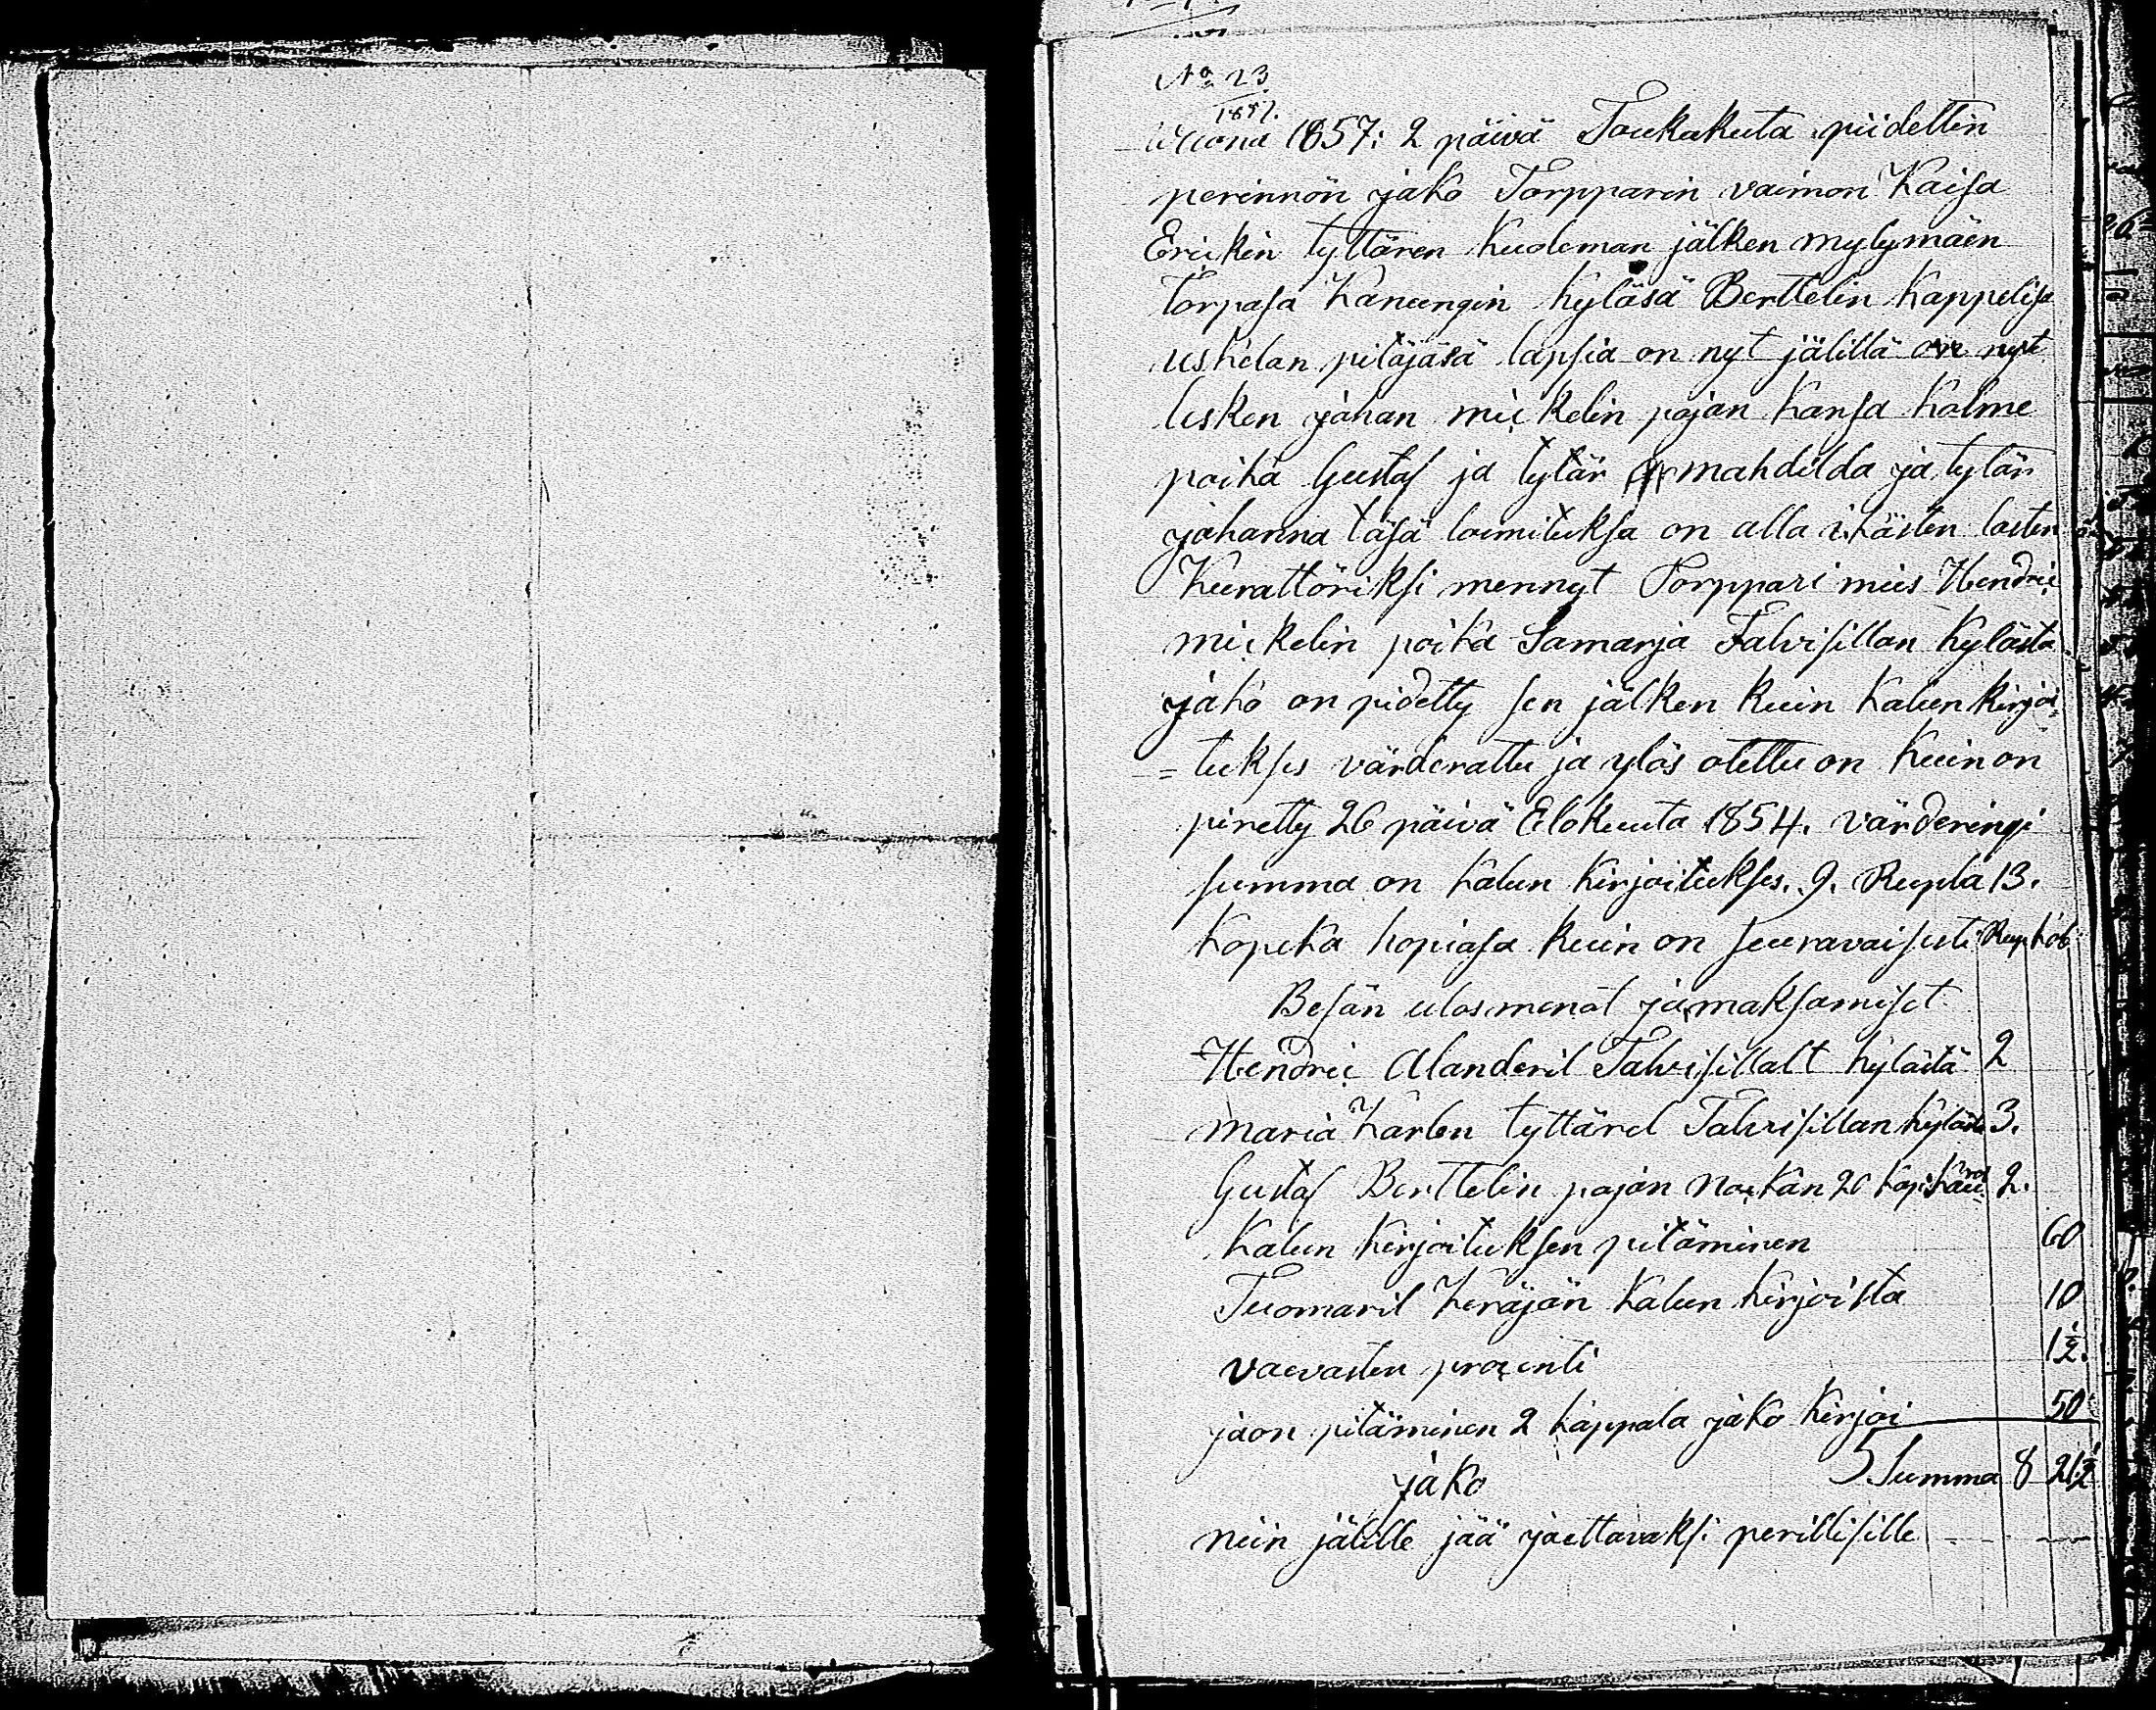 No 23
1857.
Wuona 1857: 2 päivä Toukakuta piidettin
perinnön jako Torpparin vaimon Kaisa
Erickin tyttären Kuoleman jälken mylymäen
Torpasa Kaneengin kyläsä Berttelin Kappelisa
uskelan pitäjäsä lapsia on nyt jälillä on nyt
lesken johan mickelin pojan Kansa Kolme
poika Gustaf ja tytär mahdilda ja tytär
johanna täsä toimituksa on alla ikäisten lasten
Kurattöriksi mennyt Torppari mies Hendric
mickelin poika Samarja Talvisillan Kylästä
jako on pidetty sen jälken Kuin Kalun kirjoi
= tukses värderattu ja ylös otettu on Kuin on
piretty 26 päivä Elokuuta 1854. värderingi
summa on Kalun Kirjoitukses. 9. Rupla 13.
Kopeka hopiasa Kuin on seuravaisesti Rup. Kob
Besän ulosmenot ja maksamiset
Hendric Alanderil Talvisillalt kylästä 2
maria Karlen tyttärel Talvisillan kyläst 3.
Gustaf Berttelin pojan 20 Kop: 2.
Kalun Kirjoituksen pitäminen 60
Tuomaril Keräjän Kalun Kirjoista 10
vaevasten procenti 1½.
jaon pitäminen 2 Kappala jako Kirjoi 50
Summa 8 21½
jako
niin jälille jää jaettavaksi perillisille